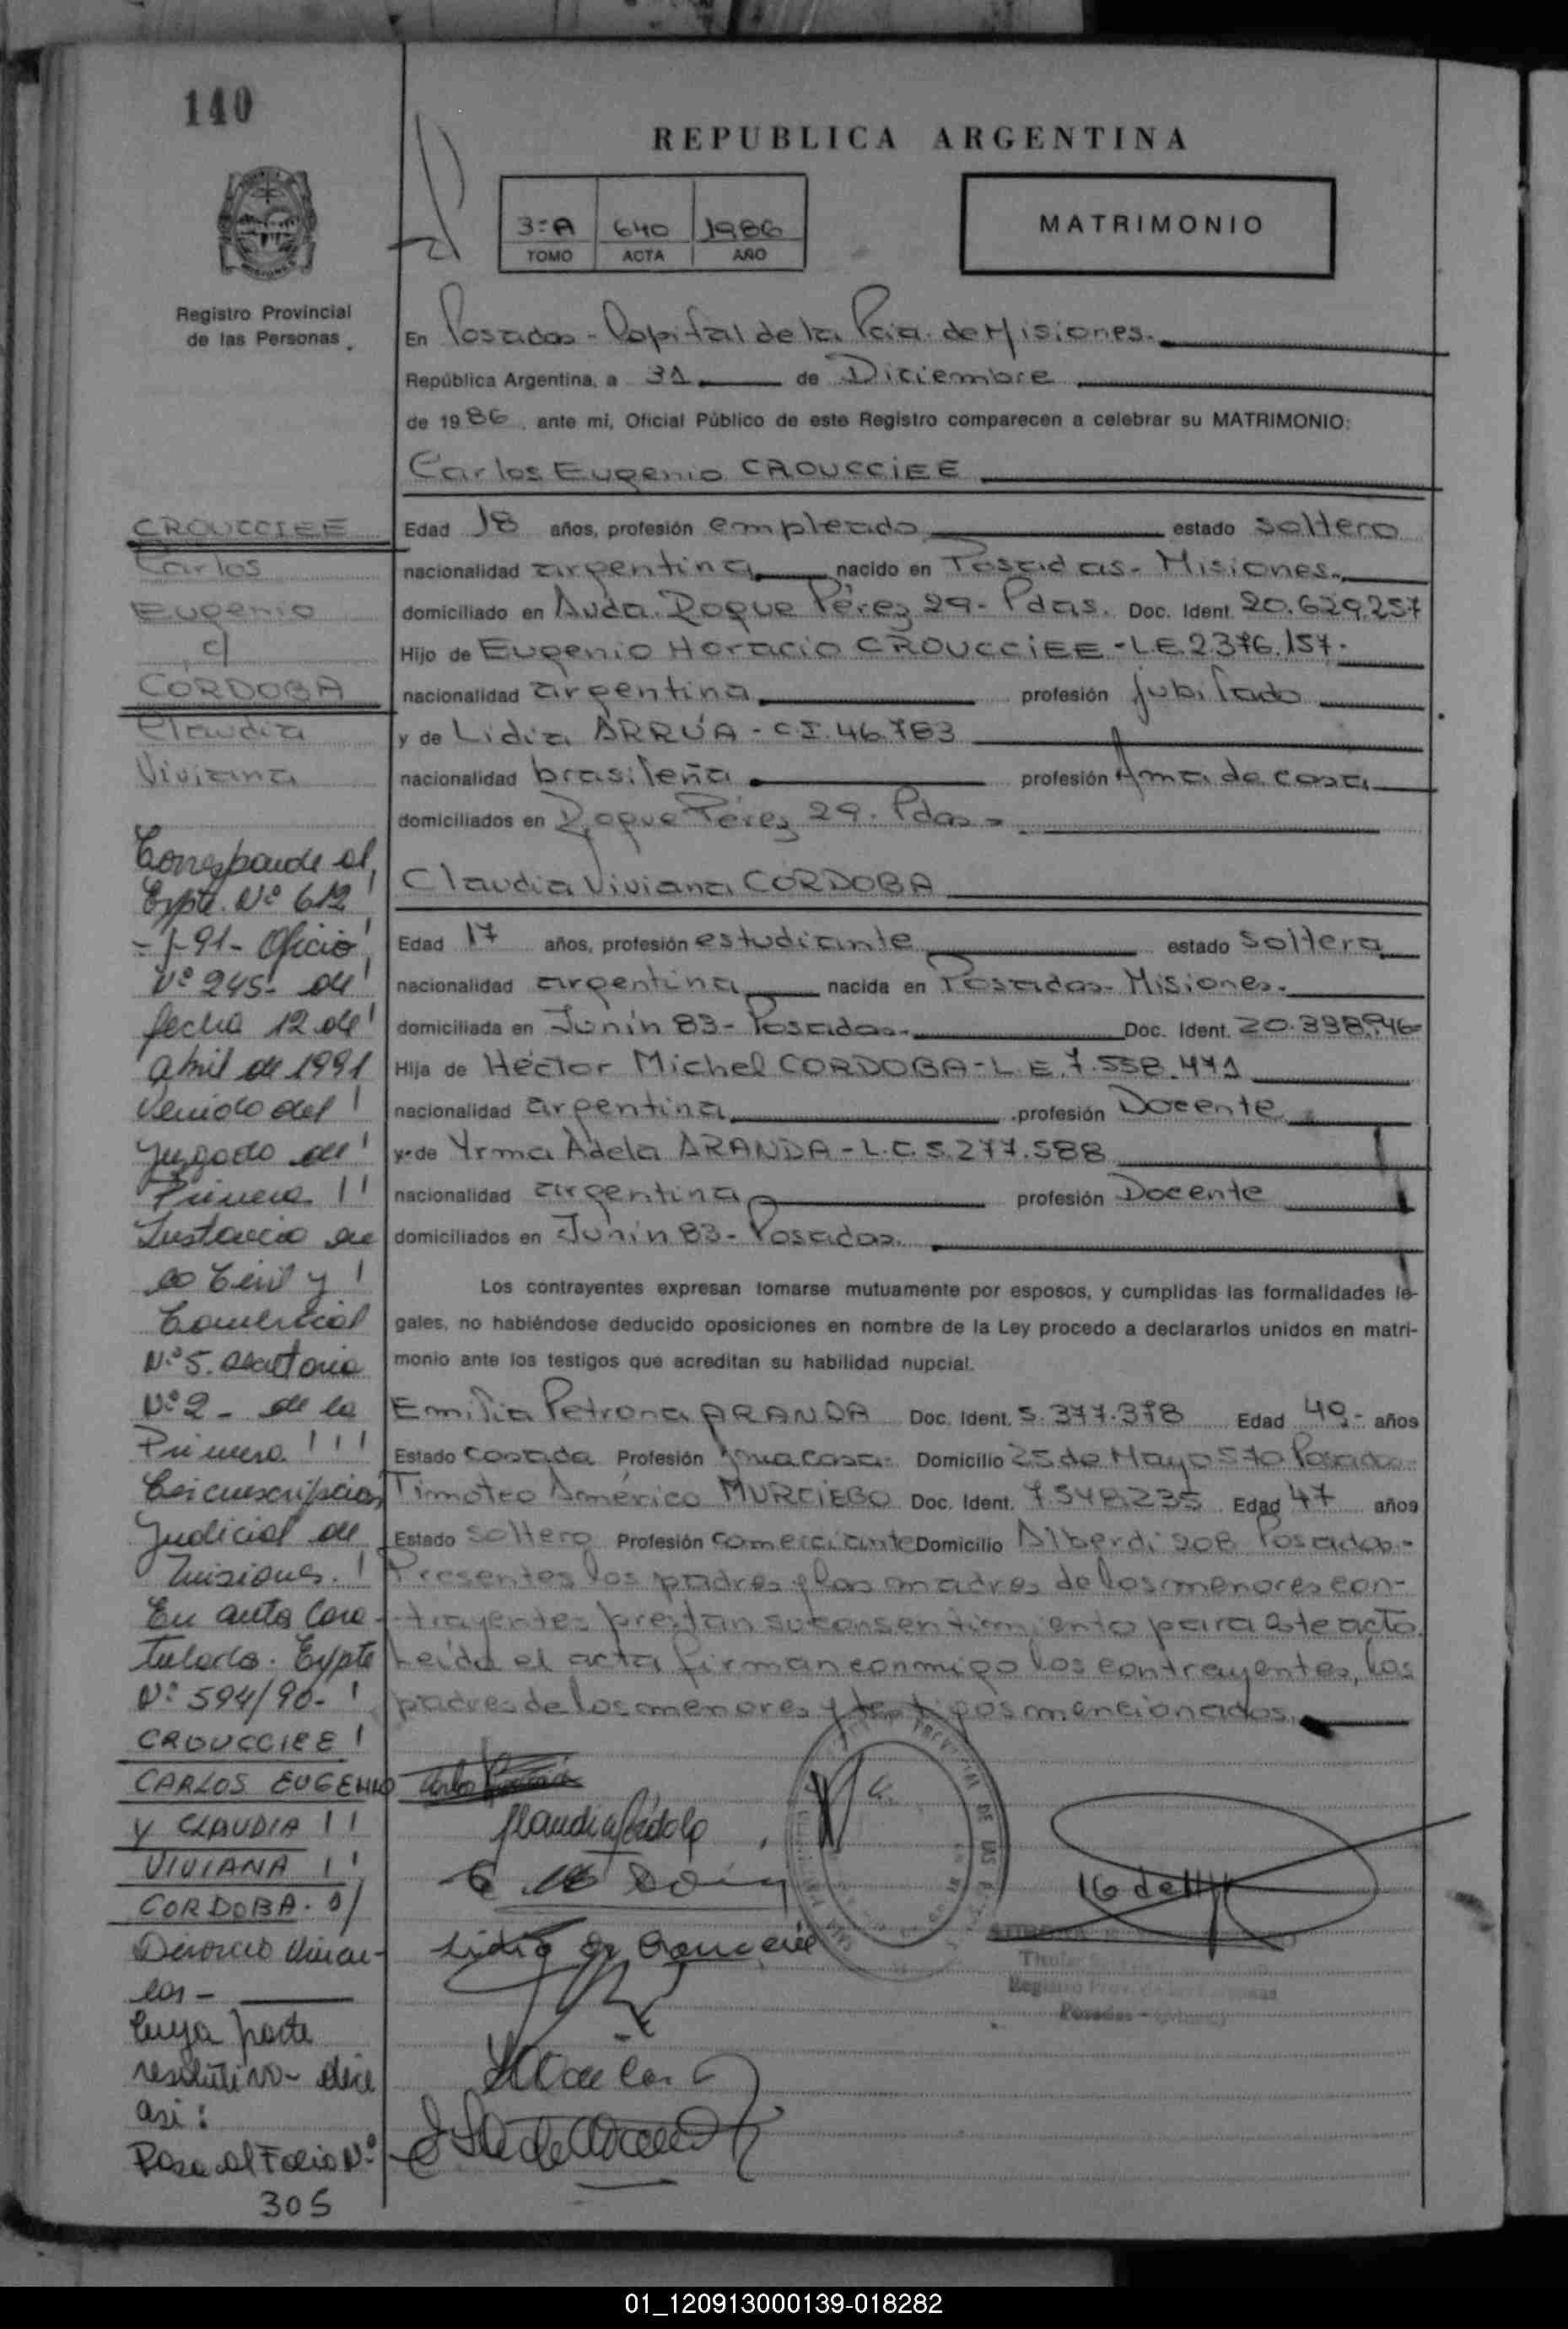 140
REPUBLICA ARGENTINA
3ºA 640 1986
TOMO ACTA AÑO
MATRIMONIO
Registro Provincial
de las Personas
En Posadas - Capital de la Pcia. de Misiones.
República Argentina, a 31 de Diciembre
de 1986, ante mí, Oficial Público de este Registro comparecen a celebrar su MATRIMONIO:
Carlos Eugenio CROUCCIEE
Edad 18 años, profesión empleado estado soltero
nacionalidad argentina nacido en Posadas - Misiones.
domiciliado en Avda. Roque Pérez 29 - Pdas. Doc. Ident. 20.629.257
Hijo de Eugenio Horacio CROUCCIEE - L.E. 2.376.157.
nacionalidad argentina profesión jubilado
y de Lidia ARRÚA - C.I. 46.783
nacionalidad brasileña profesión Ama de casa
domiciliados en Roque Pérez 29 - Pdas -
Claudia Viviana CORDOBA
Edad 17 años, profesión estudiante estado soltera
nacionalidad argentina nacida en Posadas - Misiones.
domiciliada en Junín 83 - Posadas. Doc. Ident.
Hija de Héctor Michel CORDOBA - L.E. 7.558.471
nacionalidad argentina profesión Docente
y de Yrma Adela ARANDA - L.C. 5.277.588
nacionalidad argentina profesión Docente
domiciliados en Junín 83 - Posadas.
Los contrayentes expresan tomarse mutuamente por esposos, y cumplidas las formalidades le-
gales, no habiéndose deducido oposiciones en nombre de la Ley procedo a declararlos unidos en matri-
monio ante los testigos que acreditan su habilidad nupcial.
Emilia Petrona ARANDA Doc. Ident. 5.377.378 Edad 49.- años
Estado casada Profesión Ama casa. Domicilio 25 de Mayo 570 Posadas
Timoteo Américo MURCIEGO Doc. Ident. 7.548.235 Edad 47 años
Estado soltero Profesión comerciante Domicilio Alberdi 208 Posadas -
Presentes los padres y las madres de los menores con-
trayentes prestan su consentimiento para este acto.
Leída el acta firman conmigo los contrayentes, los
padres de los menores y testigos mencionados.
CROUCCIEE
Carlos
Eugenio
c/
CORDOBA
Claudia
Viviana
Corresponde al
Expte. Nº 612
- 1-91- Oficio
Nº 245- de
fecha 12 de
abril de 1991
venido del
Juzgado de
Primera
Instancia en
lo Civil y
Comercial
Nº 5. Secretaria
Nº 2 - de la
Primera
Circunscripción
Judicial de
Misiones.
En autos Cara-
tulados. Expte
Nº 594/90-
CROUCCIEE
CARLOS EUGENIO
y CLAUDIA
VIVIANA
CORDOBA. s/
Divorcio Vincu-
lar -
Cuya parte
resolutiva - dice
así:
Pasa al Folio Nº
305
Registro Prov. de las Personas
Posadas
01_120913000139-018282